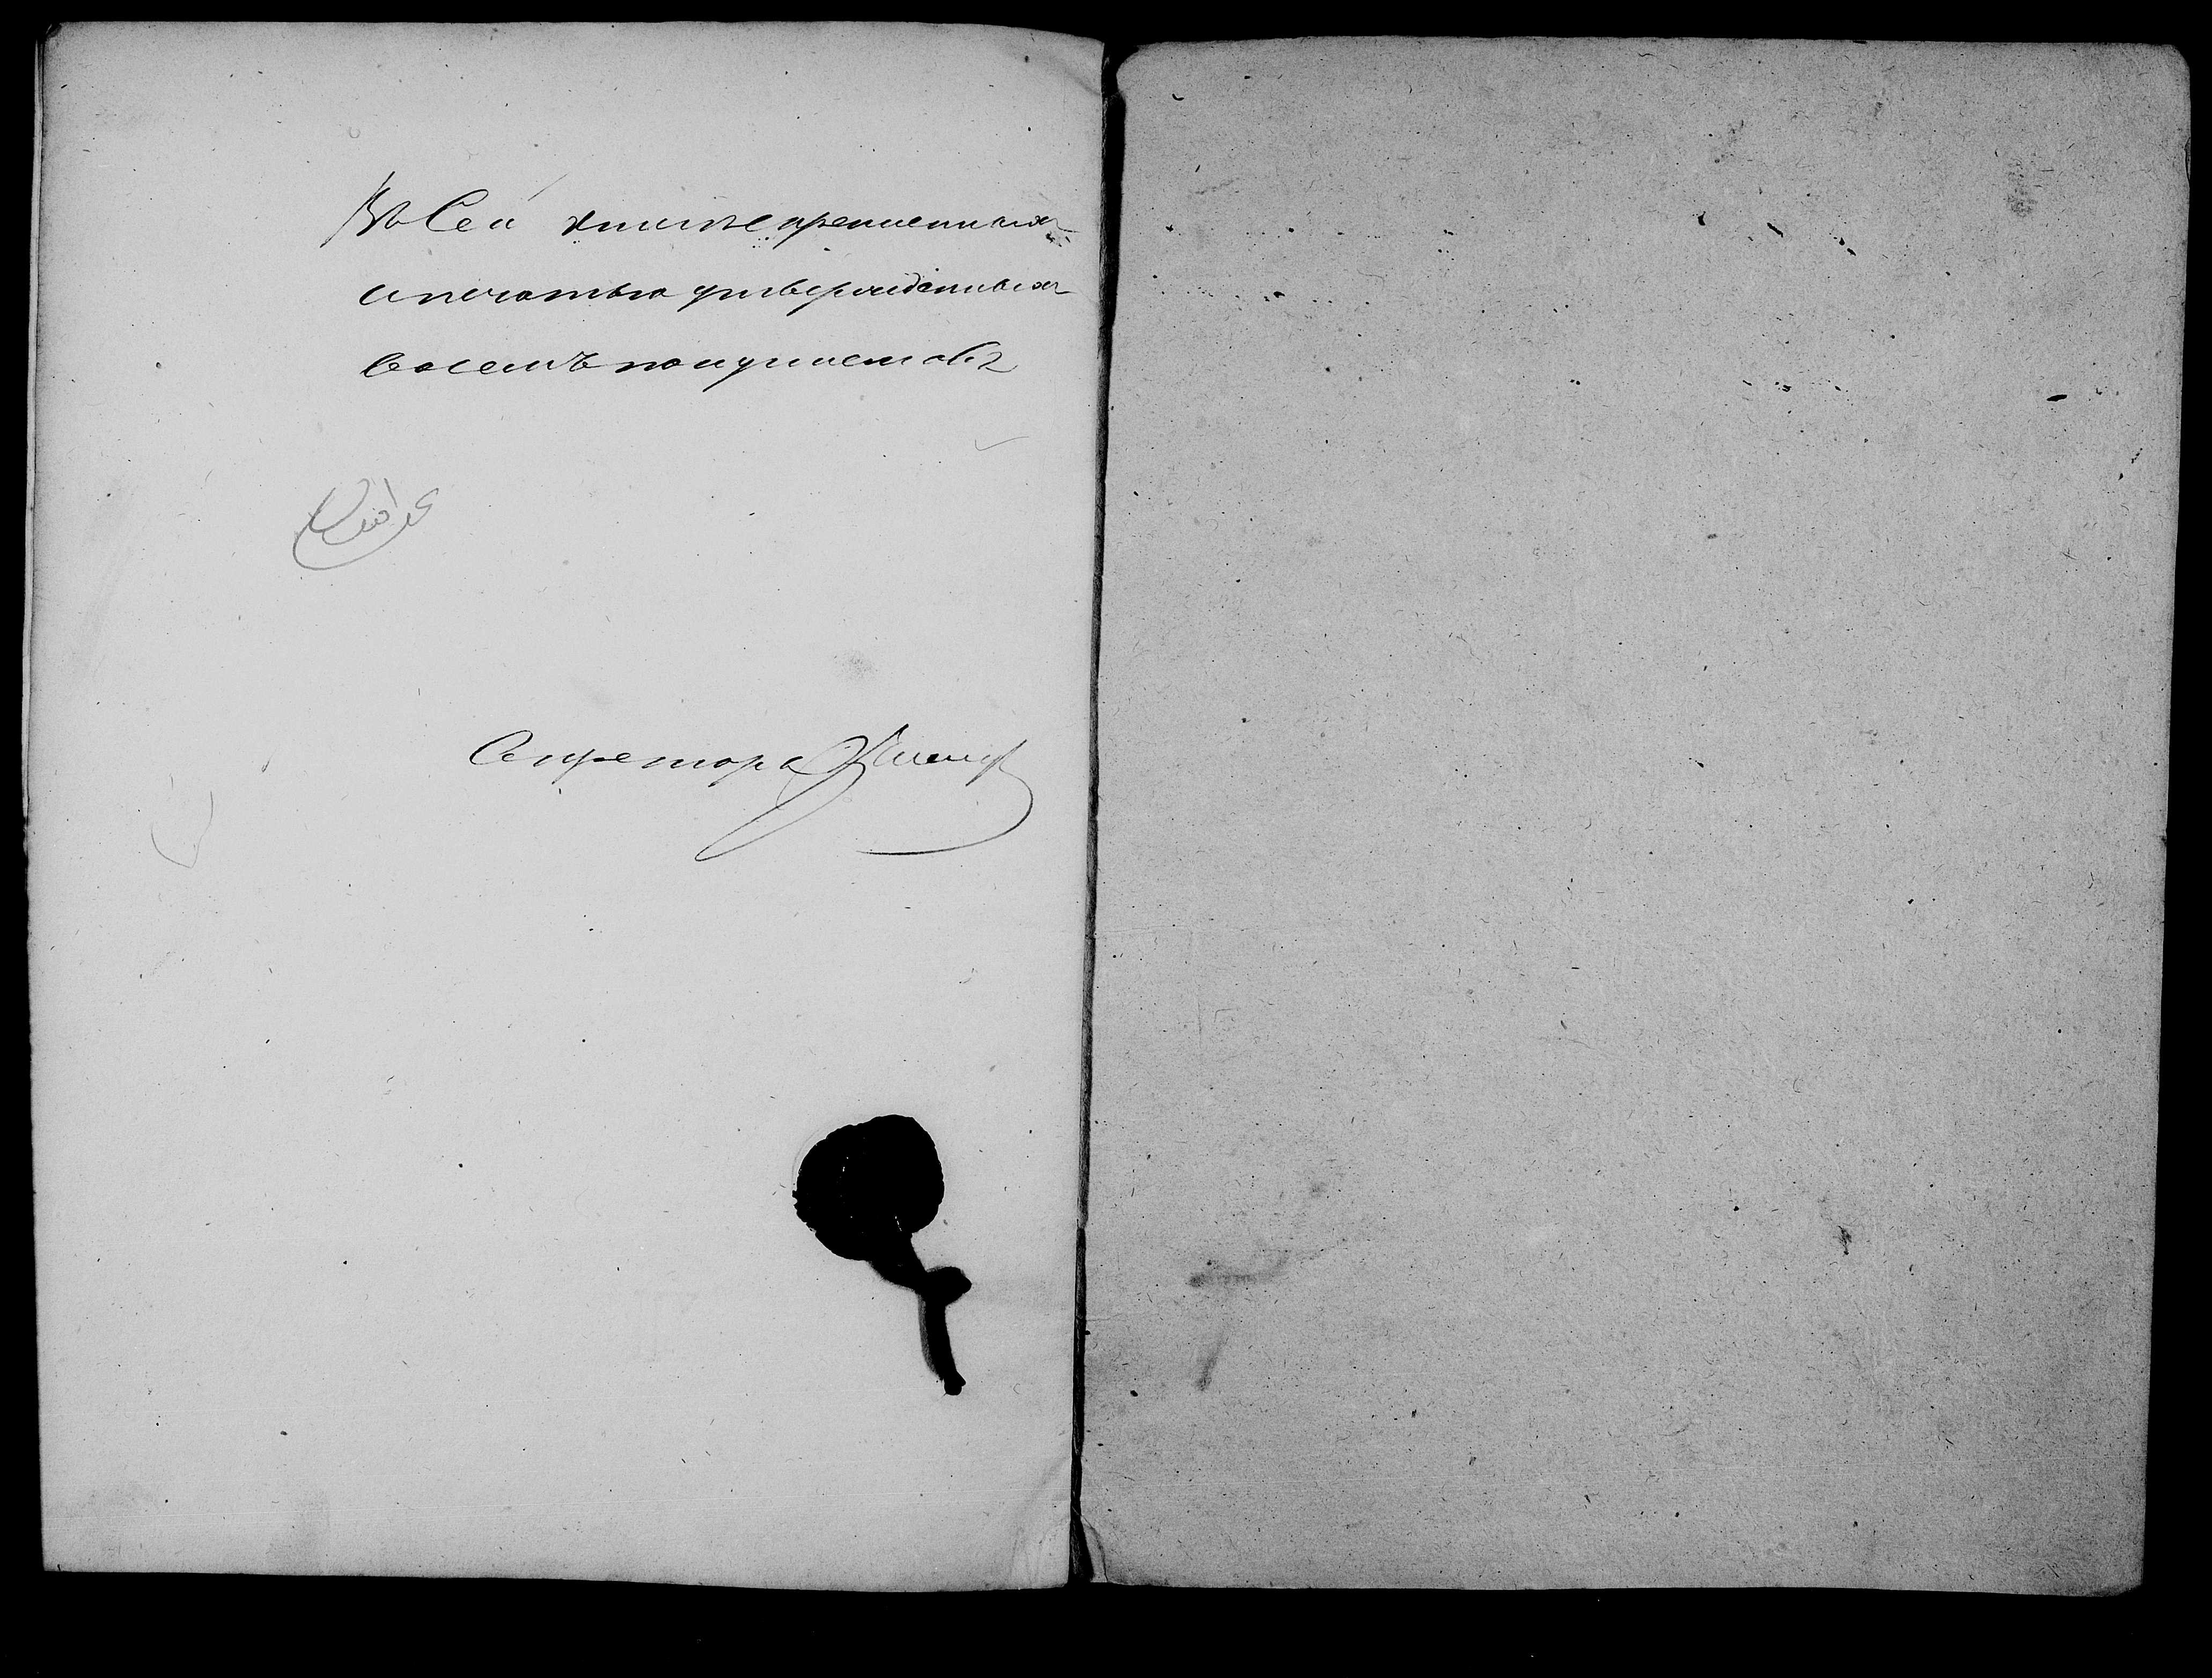 Въ Сей книгѣ скрепленныхъ
и печатью утвержденныхъ
восемь полулистовъ
Секретарь